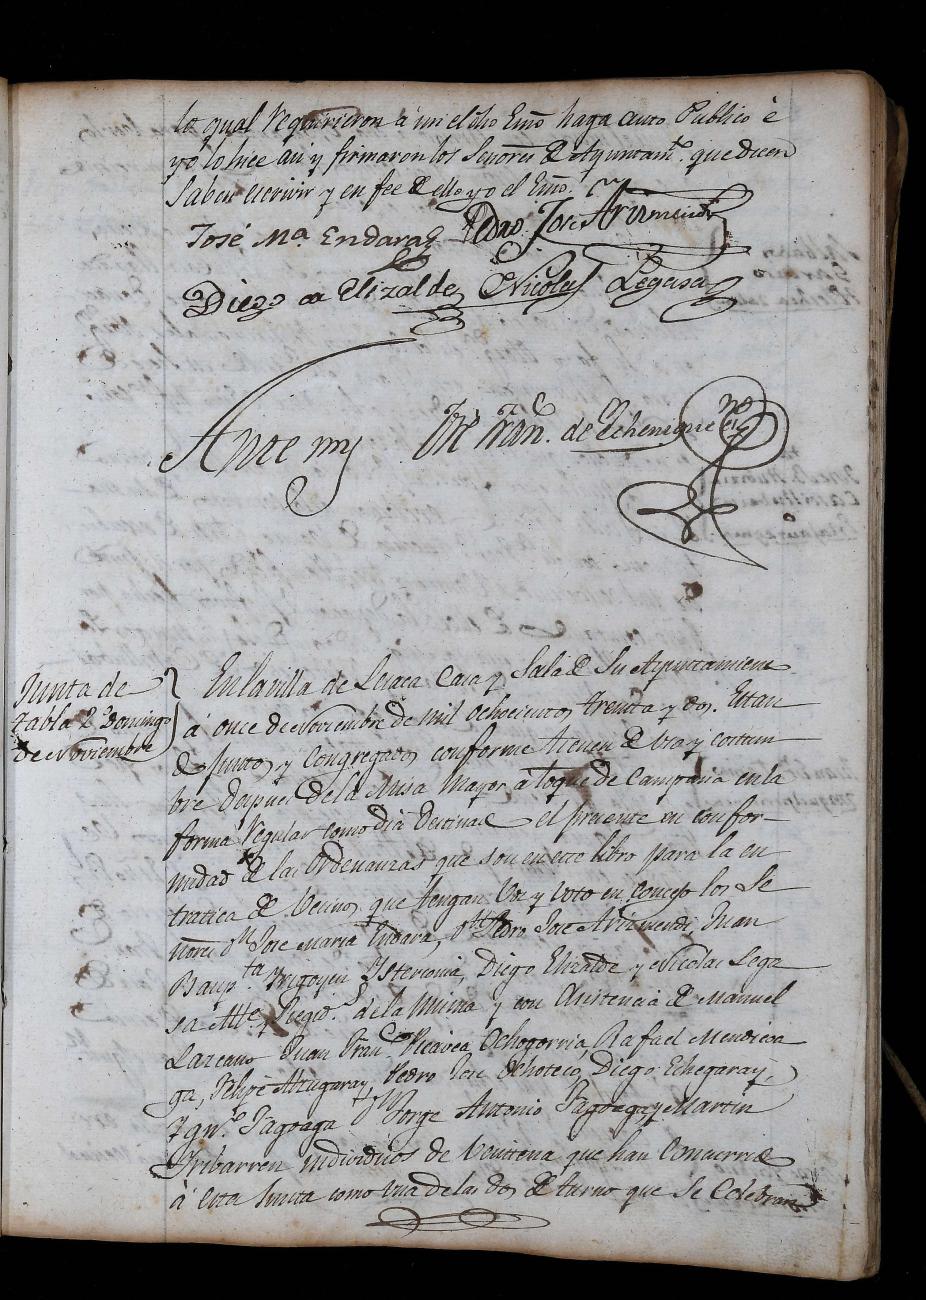 lo qual requirieron á mi el dho Esno haga auto Publico é
yo lo hice asi y firmaron los Señores de Ayuntamto. que dicen
Saben escrivir y en fee de ello yo el Esno.
José Ma. Endara Pedro José Arizmendi
Diego de Elizalde Nicolas Legasa
Ante mi José Fran.co de Echenique no
Junta de
tabla 2º Domingo
de Noviembre
En la villa de Lesaca Casa y Sala de Su Ayuntamien
á once de Noviembre de mil ochocientos treinta y dos. Estan
do Juntos y Congregados conforme tienen de Uso y costum
bre despues de la Misa Mayor a toque de Campana en la
forma Regular como dia Destinado el presente en confor-
midad de las Ordenanzas que son en este libro para la en
tratica de Vecinos que tengan Voz y Voto en Concejo los Se
ñores Dn Jose Maria Endara, Dn Pedro Jose Arizmendi, Juan
Baupta. Yrigoyen Ysterionia, Diego Elizalde y Nicolas Lega
sa Alte. y Regids. de la misma y con Asistencia de Manuel
Lazcano Juan Franco. Picavea Ochogorria, Rafael Mendiera
ga, Felipe Alzugaray, Pedro Jose Ochoteco, Diego Echegaray,
Ygno. Tagoaga Jorge Antonio Tagoaga, y Martin
Yribarren individuos de Veintena que han Concurrido
á esta Junta como una de las dos de turno que se Celebran